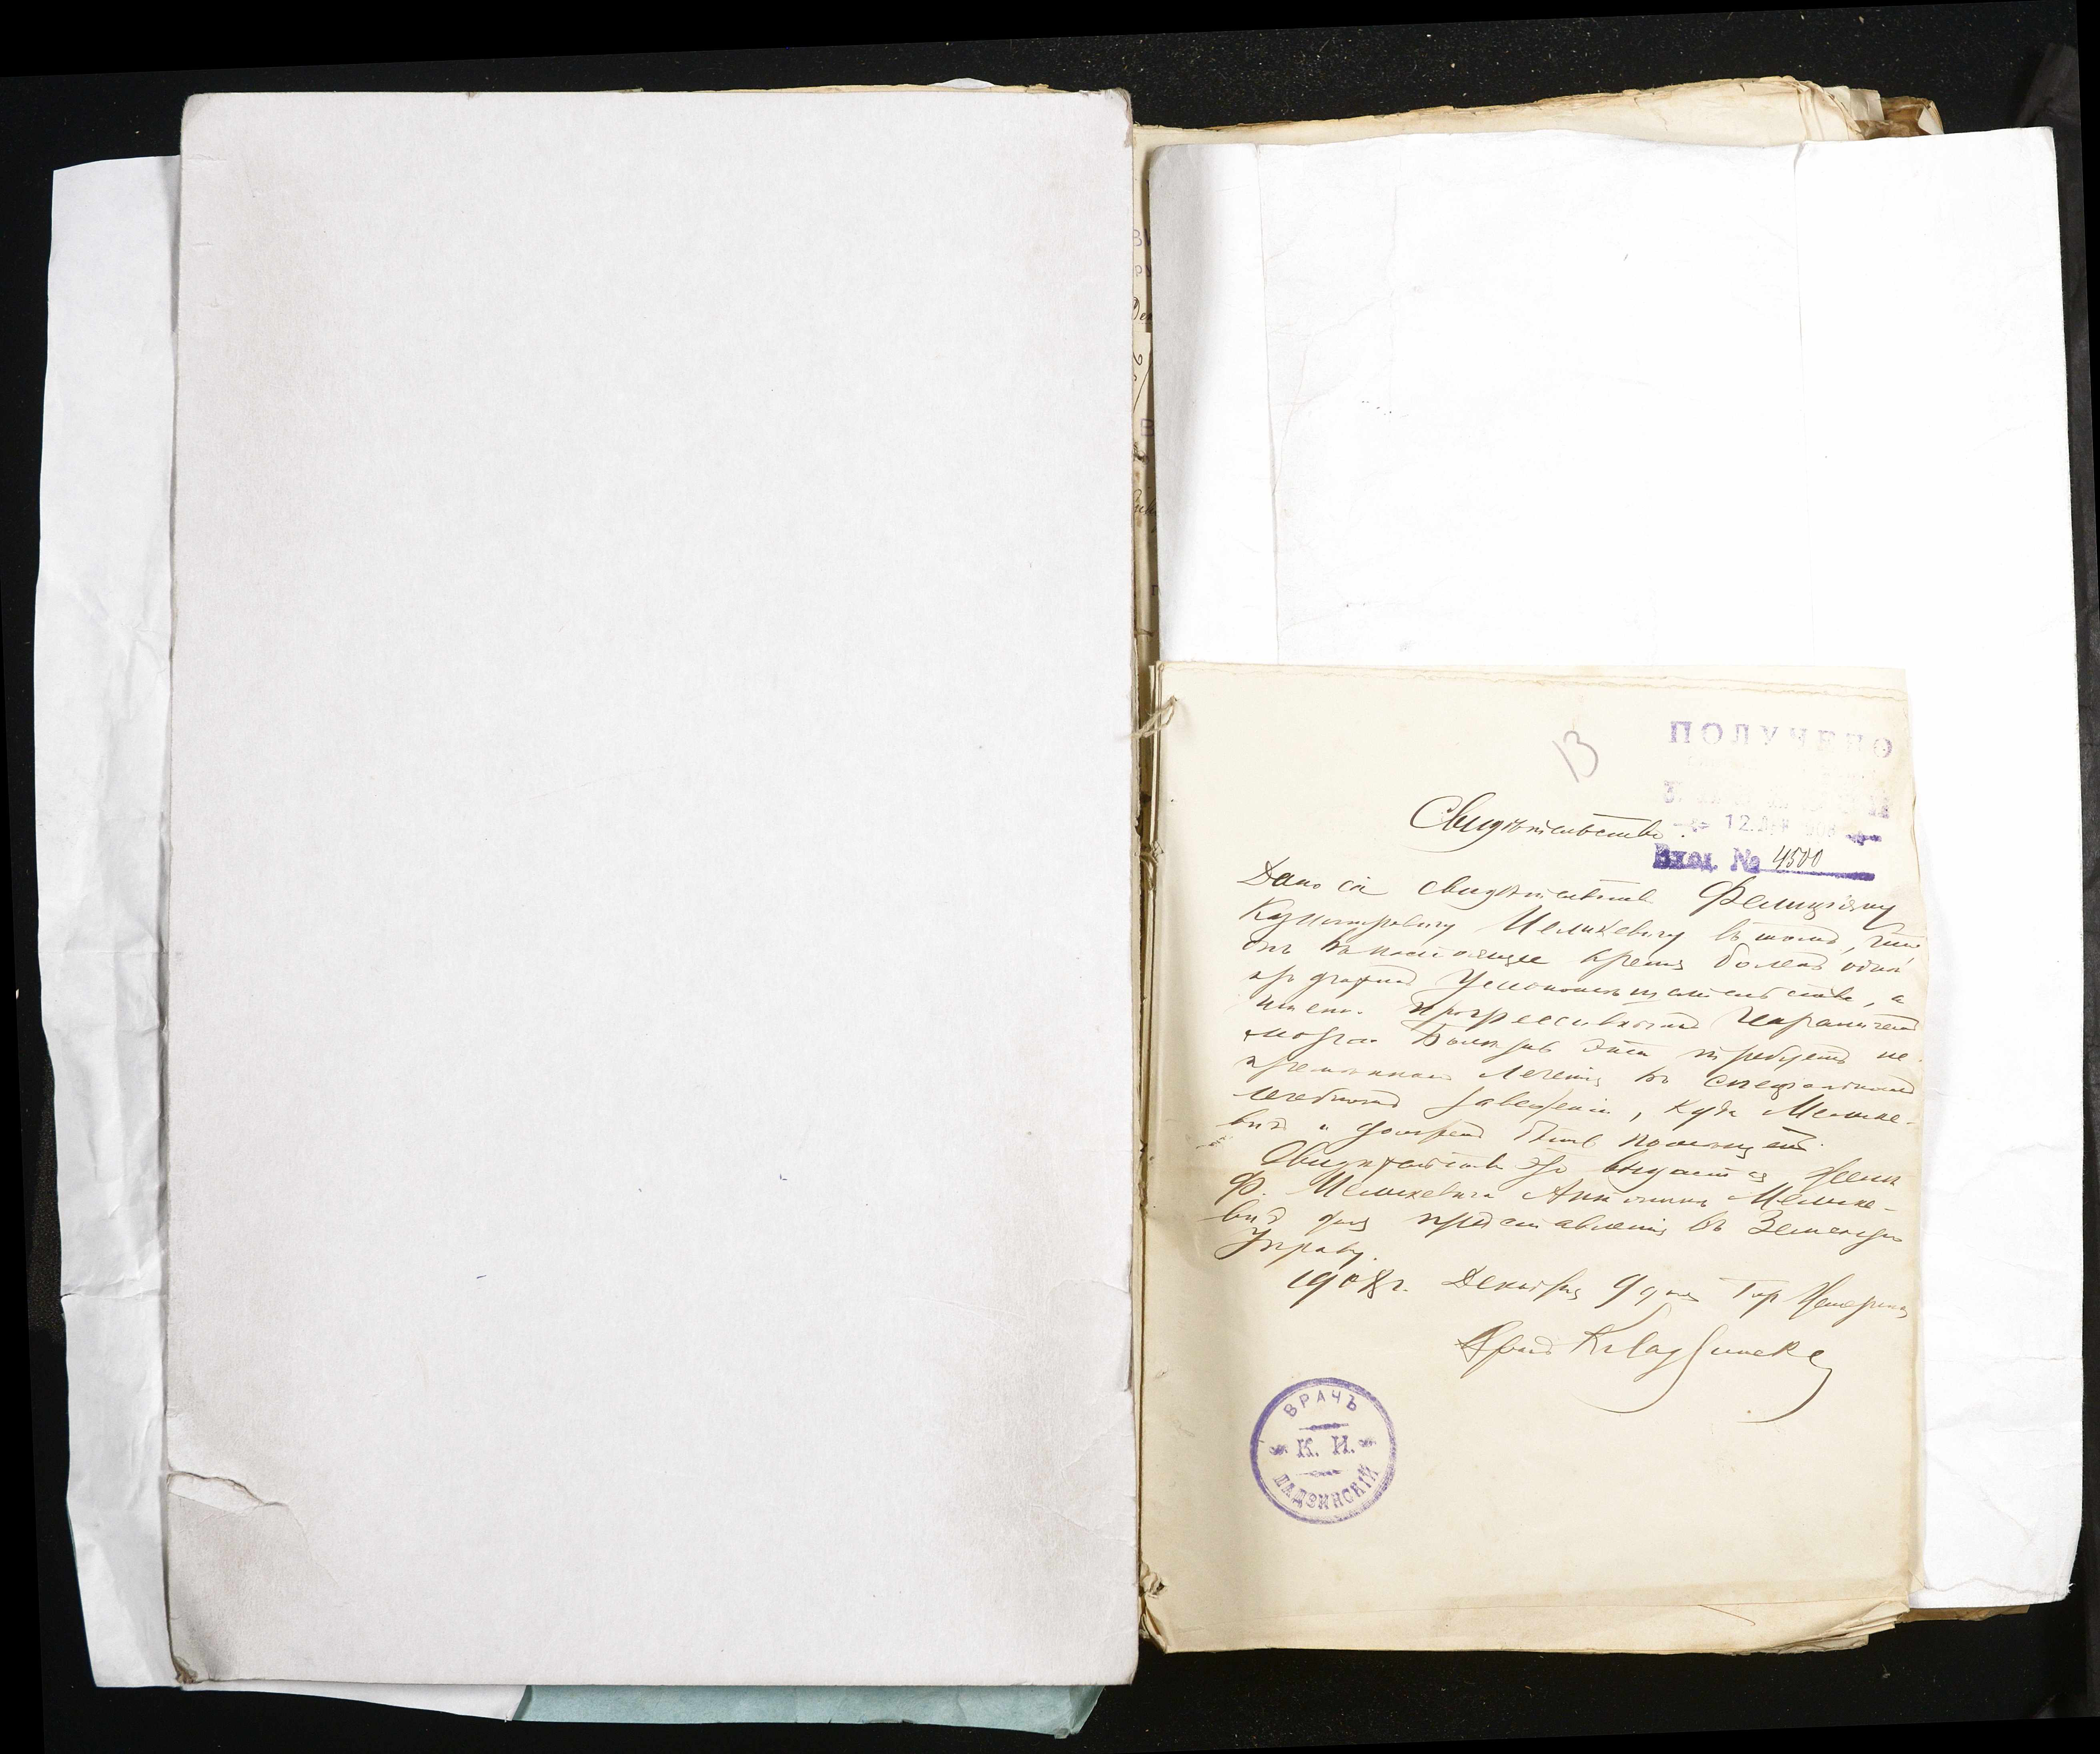 13
ПОЛУЧЕНО
12. ДЕК 1908
Вход. № 4500
Свидѣтельство.
Дано сіе свидѣтельство Фелиціяну
Казимировичу Мешкевичу въ томъ, что
онъ въ настоящее время боленъ одной
изъ формъ умопомѣшательства, а
имен. прогрессивнымъ параличемъ
мозга. Болѣзнь эта требуетъ не-
премѣннаго леченія въ спеціальномъ
лечебномъ заведеніи, куда Мешке-
вичъ и долженъ быть помѣщенъ.
Свидѣтельство это выдается женѣ
Ф. Мешкевича Антонинѣ Мешке-
вичъ для представленія въ Земскую
Управу.
1908 г. Декабря 9 дня Гор
Врачъ
ВРАЧЪ
К. И.
ЛАДЗИНСКІЙ